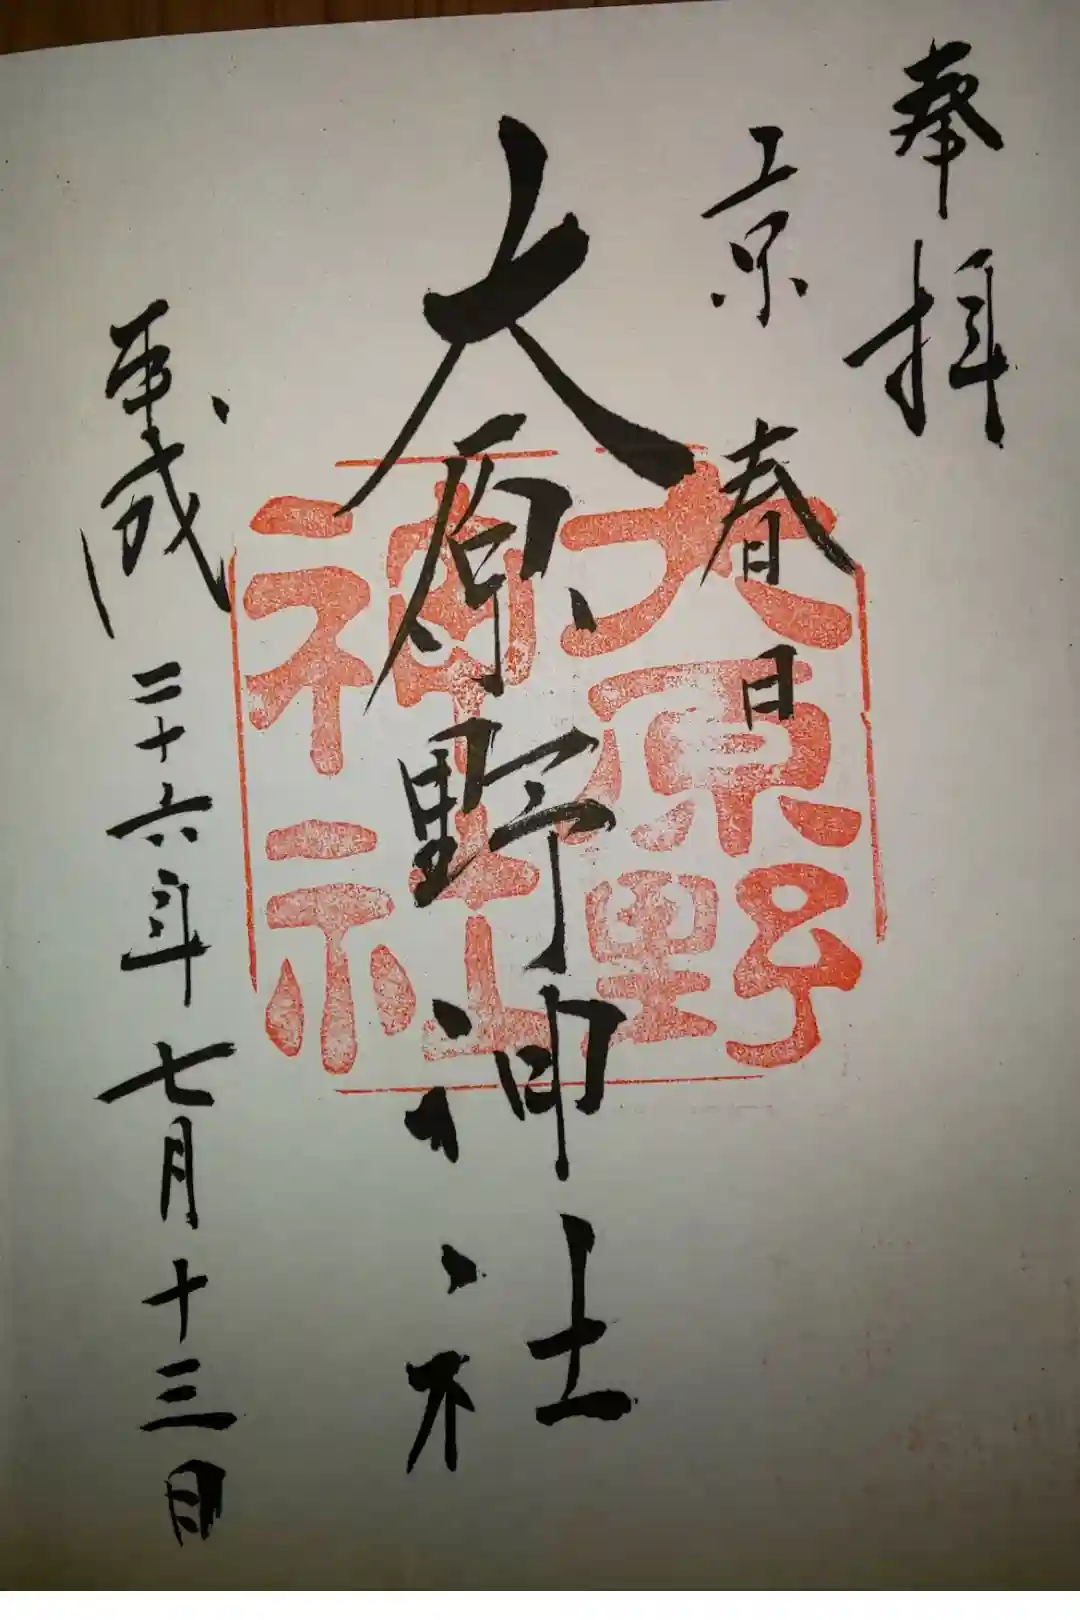 奉拝
京春日
大原野神社
平成二十六年七月十三日
大原野
神社